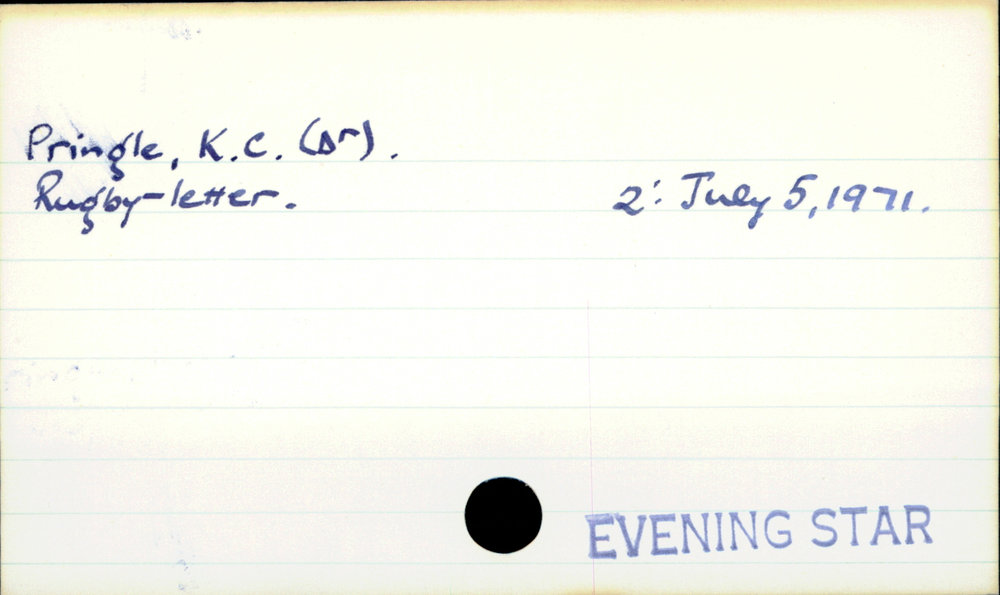 Pringle, K.C. (Dr).
Rugby-letter. 2: July 5, 1971.
EVENING STAR